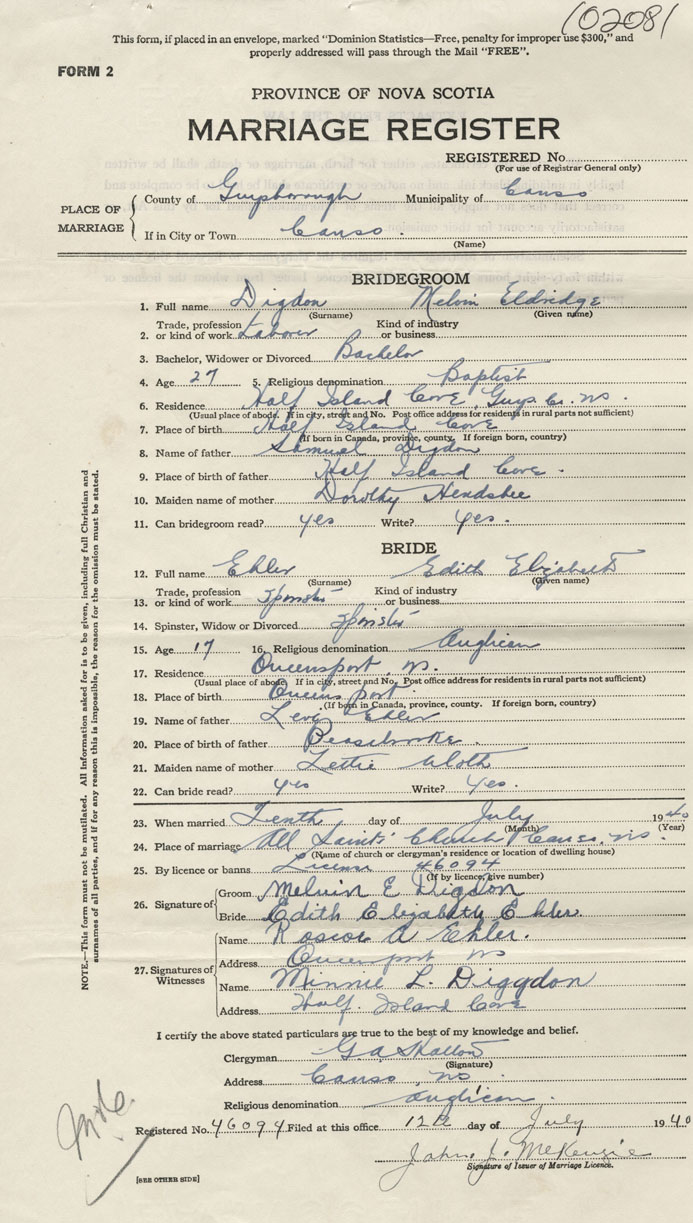 102081
This form, if placed in an envelope, marked "Dominion Statistics—Free, penalty for improper use $300," and
properly addressed will pass through the Mail "FREE".
FORM 2
PROVINCE OF NOVA SCOTIA
MARRIAGE REGISTER
REGISTERED No.
(For use of Registrar General only)
PLACE OF MARRIAGE
County of Guysborough Municipality of Canso
If in City or Town Canso.
(Name)
BRIDEGROOM
1. Full name Digdon Melvin Eldridge
(Surname) (Given name)
2. Trade, profession or kind of work Labour Kind of industry or business
3. Bachelor, Widower or Divorced Bachelor
4. Age 27 5. Religious denomination Baptist
6. Residence Half Island Cove, Guys Co. N.S.
(Usual place of abode. If in city, street and No. Post office address for residents in rural parts not sufficient)
7. Place of birth Half Island Cove
(If born in Canada, province, county. If foreign born, country)
8. Name of father Samuel Digdon
9. Place of birth of father Half Island Cove.
10. Maiden name of mother Dorothy Hendsbee
11. Can bridegroom read? yes Write? yes.
BRIDE
12. Full name Ehler Edith Elizabeth
(Surname) (Given name)
13. Trade, profession or kind of work Kind of industry or business
14. Spinster, Widow or Divorced
15. Age 17 16. Religious denomination Anglican
17. Residence Queensport, N.S.
(Usual place of abode. If in city, street and No. Post office address for residents in rural parts not sufficient)
18. Place of birth Queens port.
(If born in Canada, province, county. If foreign born, country)
19. Name of father Levi Ehler
20. Place of birth of father
21. Maiden name of mother Lettie
22. Can bride read? yes Write? yes.
23. When married Tenth day of July 1940
(Month) (Year)
24. Place of marriage All Saints' Church Canso, N.S.
(Name of church or clergyman's residence or location of dwelling house)
25. By licence or banns License 46094
(If by licence, give number)
26. Signature of
Groom Melvin E Digdon
Bride Edith Elizabeth Ehler.
27. Signatures of Witnesses
Name Roscoe A Ehler.
Address Queensport NS
Name Minnie L. Diggdon
Address Half Island Cove
I certify the above stated particulars are true to the best of my knowledge and belief.
Clergyman G.A.
(Signature)
Address Canso, NS.
Religious denomination Anglican.
Registered No. 46094 Filed at this office 12th day of July 1940
John J. McKenzie
Signature of Issuer of Marriage Licence.
[SEE OTHER SIDE]
NOTE.—This form must not be mutilated. All information asked for is to be given, including full Christian and
surnames of all parties, and if for any reason this is impossible, the reason for the omission must be stated.